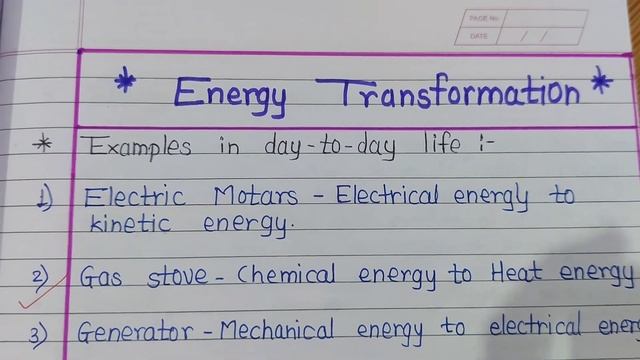 PAGE No.
DATE / /
* Energy Transformation *
* Examples in day-to-day life :-
1) Electric Motars - Electrical energy to
kinetic energy.
2) Gas stove - Chemical energy to Heat energy
3) Generator - Mechanical energy to electrical ener